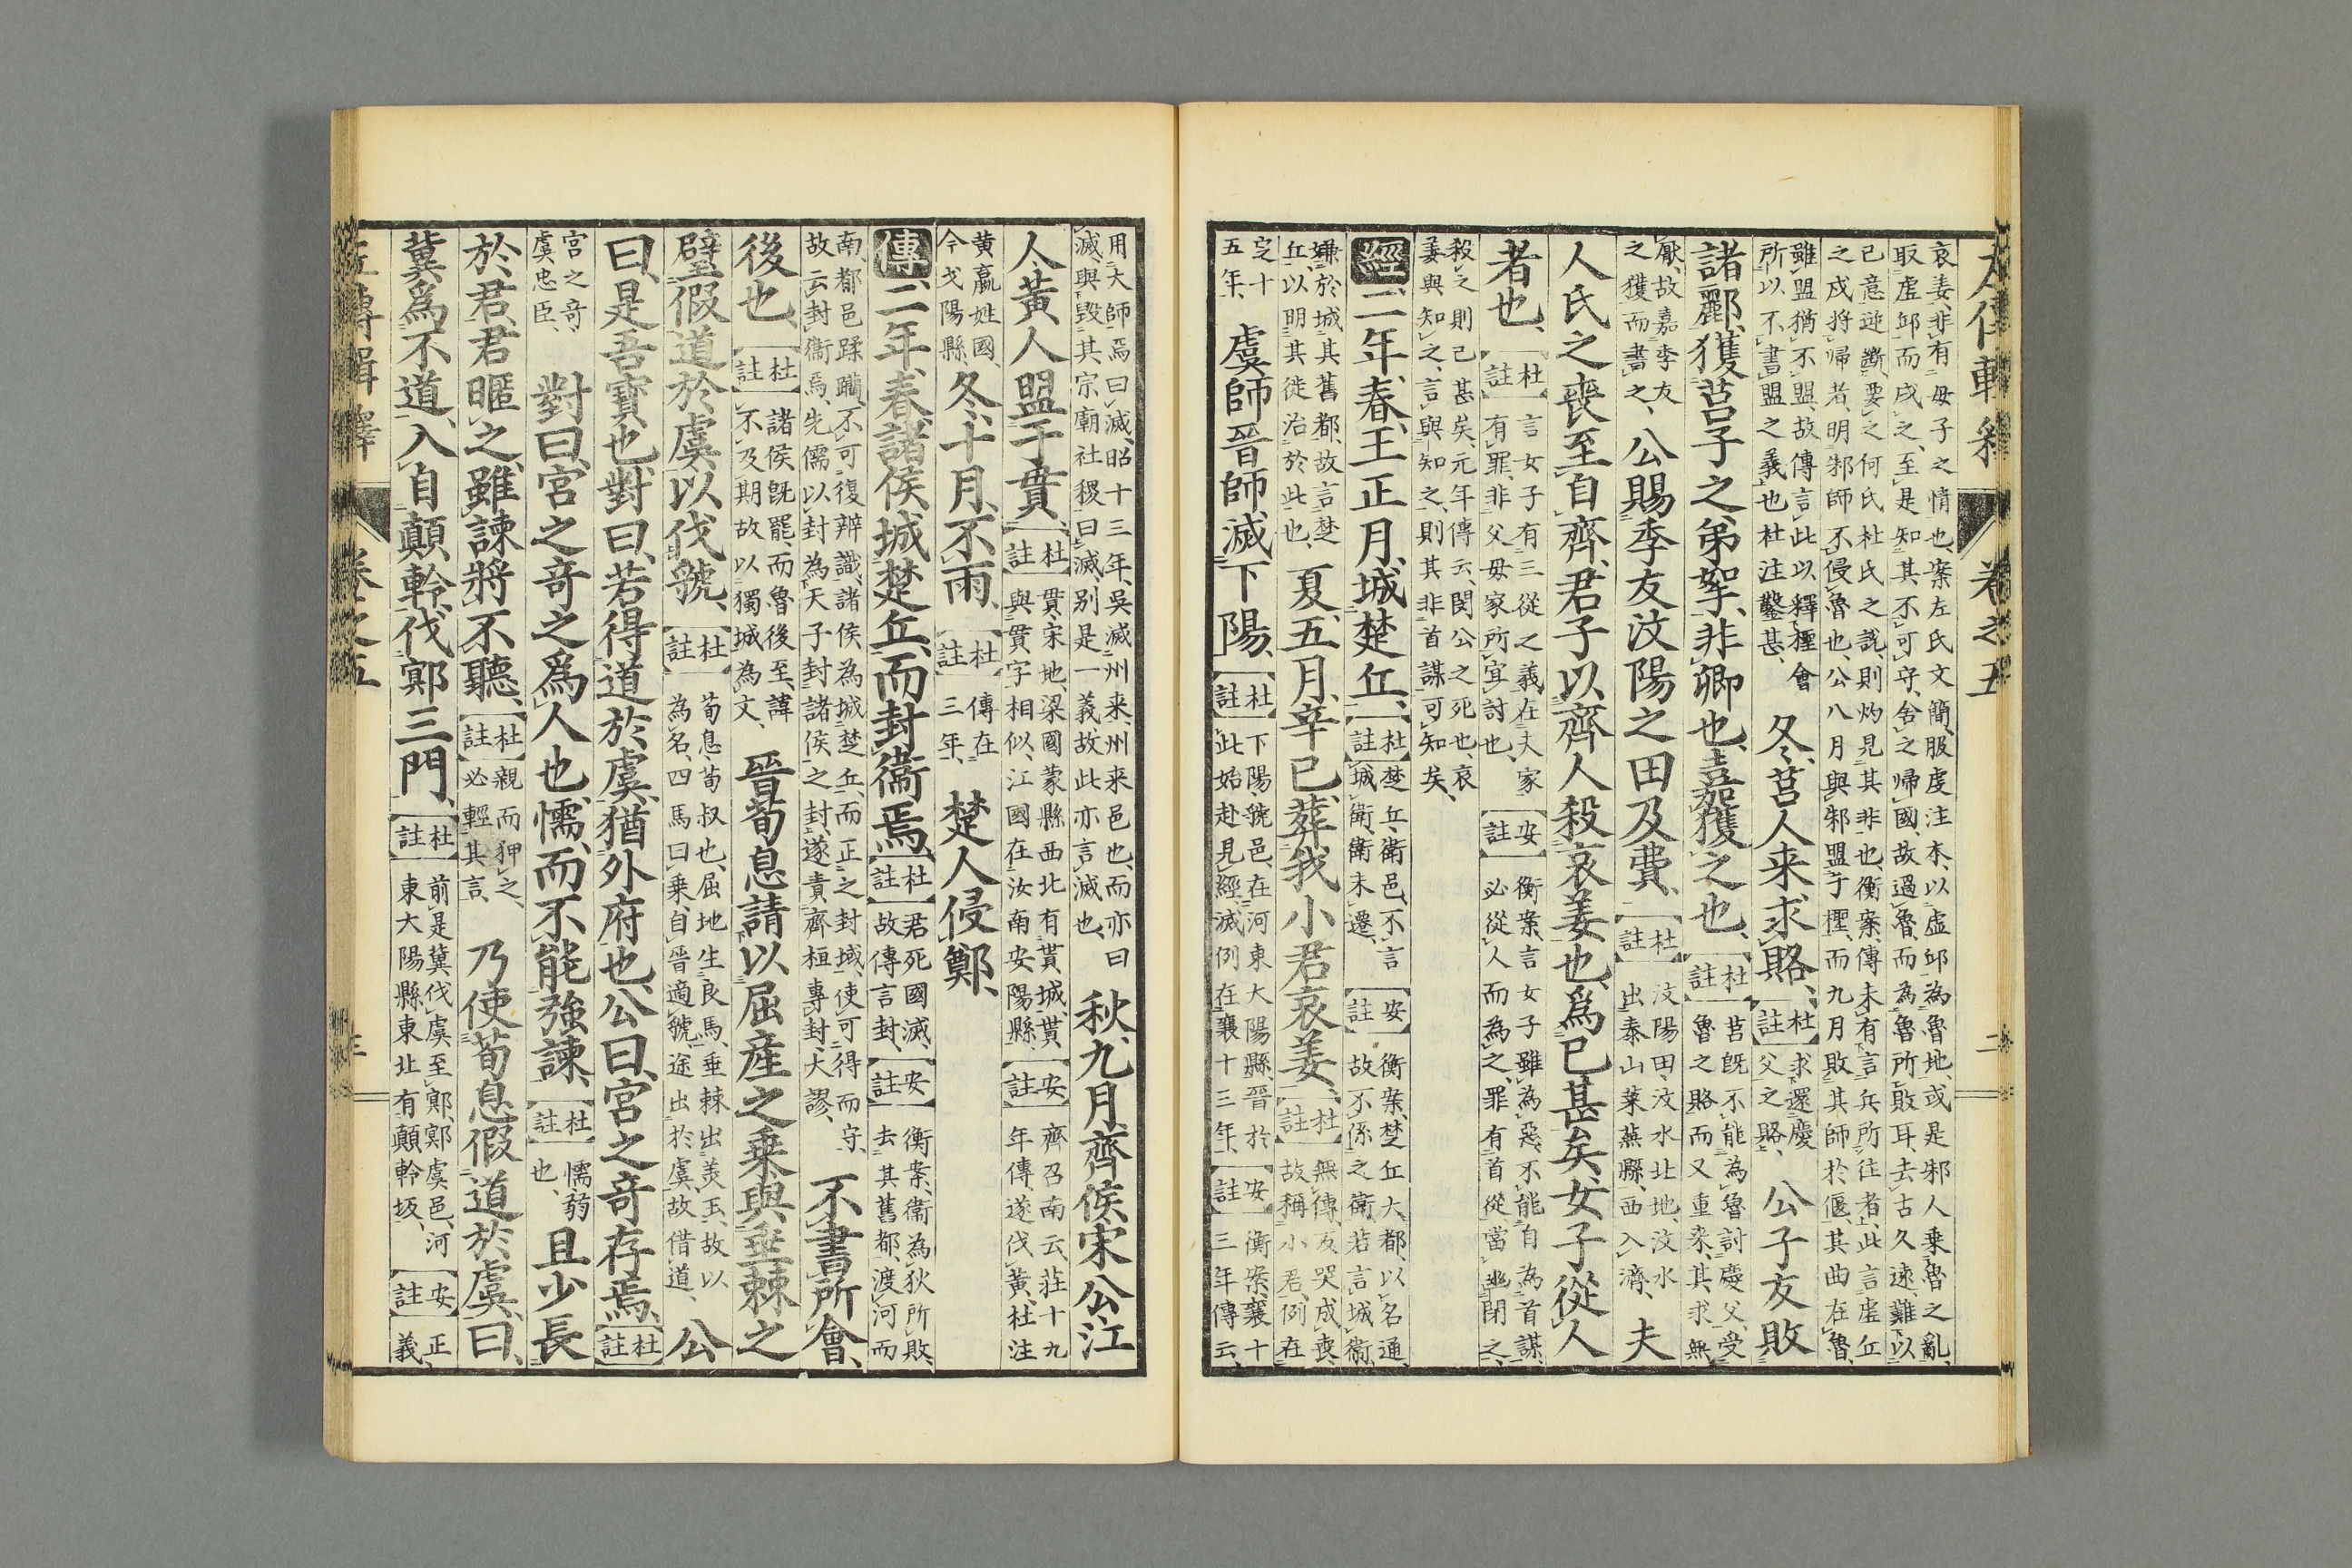 左傳輯釋 卷之五 二
哀姜、非有母子之情也、案左氏文簡、服虔注本、以虛邱為魯地、或是邾人乗魯之亂、
取虛邱而戍之、至是知其不可守、舍之帰國、故過魯、而為魯所敗耳、去古久遠、難以
己意逆斷、要之何氏杜氏之説、則灼見其非也、衡案、傳未有言兵所往者、此言虛丘
之戍将帰者、明邾師不侵魯也、公八月與邾盟于檉、而九月敗其師於偃、其曲在魯、
雖盟猶不盟、故傳言此以釋經會
所以不書盟之義也杜注鑿甚、
冬、莒人来求賂、
杜註
求還慶
父之賂、
公子友敗
諸酈、獲莒子之弟挐、非卿也、嘉獲之也、
杜註
莒既不能為魯討慶父、受
魯之賂而又重来、其求無
厭、故嘉季友
之獲而書之、
公賜季友汶陽之田及費、
杜註
汶陽田、汶水北地、汶水
出泰山莱蕪縣、西入濟、
夫
人氏之喪至自齊、君子以齊人殺哀姜也、爲已甚矣、女子從人
者也、
杜註
言女子有三從之義、在夫家
有罪、非父母家所宜討也、
安註
衡案、言女子雖為惡、不能自為首謀、
必從人而為之、罪有首從、當幽閉之、
殺之則已甚矣、元年傳云、閔公之死也、哀
姜與知之、言與知之、則其非首謀可知矣、
經二年、春、王正月、城楚丘、
杜註
楚丘、衛邑、不言
城衛、衛未遷、
安註
衡案、楚丘大都、以名通、
故不係之衛、若言城衛、
嫌於城其舊都、故言楚
丘、以明其徙治於此也、
夏、五月、辛巳、葬我小君哀姜、
杜註
無傳、反哭成喪、
故稱小君、例在
定十
五年、
虞師晉師滅下陽、
杜註
下陽、虢邑、在河東大陽縣、晉於
此始赴見經、滅例在襄十三年、
安註
衡案、襄十
三年傳云、
用大師焉曰滅、昭十三年、吳滅州来、州来邑也、而亦曰
滅、與毀其宗廟社稷曰滅、别是一義、故此亦言滅也、
秋、九月、齊侯、宋公、江
人、黃人盟于貫、
杜註
貫、宋地、梁國蒙縣西北有貰城、貰
與貫字相似、江國在汝南安陽縣、
安註
齊召南云、莊十九
年傳、遂伐黃、杜注
黄嬴姓國、
今弋陽縣、
冬、十月、不雨、
杜註
傳在
三年、
楚人侵鄭、
傳二年、春、諸侯城楚丘、而封衞焉、
杜註
君死國滅、
故傳言封、
安註
衡案、衞為狄所敗、
去其舊都、渡河而
南、都邑蹂躪、不可復辨識、諸侯為城楚丘、而正之封域、使可得而守、
故云封衞焉、先儒以封為天子封諸侯之封、遂責齊桓專封、大謬、
不書所會、
後也、
杜註
諸侯既罷、而魯後至、諱
不及期、故以獨城為文、
晉荀息請以屈產之乗、與垂棘之
璧、假道於虞、以伐虢、
杜註
荀息、荀叔也、屈地生良馬、垂棘出美玉、故以
為名、四馬曰乗、自晉適虢、途出於虞、故借道、
公
曰、是吾寶也、對曰、若得道於虞、猶外府也、公曰、宮之竒存焉、
杜註
宮之竒、
虞忠臣、
對曰、宮之竒之爲人也、懦而不能強諫、
杜註
懦、弱
也、
且少長
於君、君暱之、雖諫、將不聽、
杜註
親而狎之、
必輕其言、
乃使荀息假道於虞、曰、
冀爲不道、入自顛軨、伐鄍三門、
杜註
前是冀伐虞至鄍、鄍虞邑、河
東大陽縣東北有顛軨坂、
安註
正
義、
左傳輯釋 卷之五 三